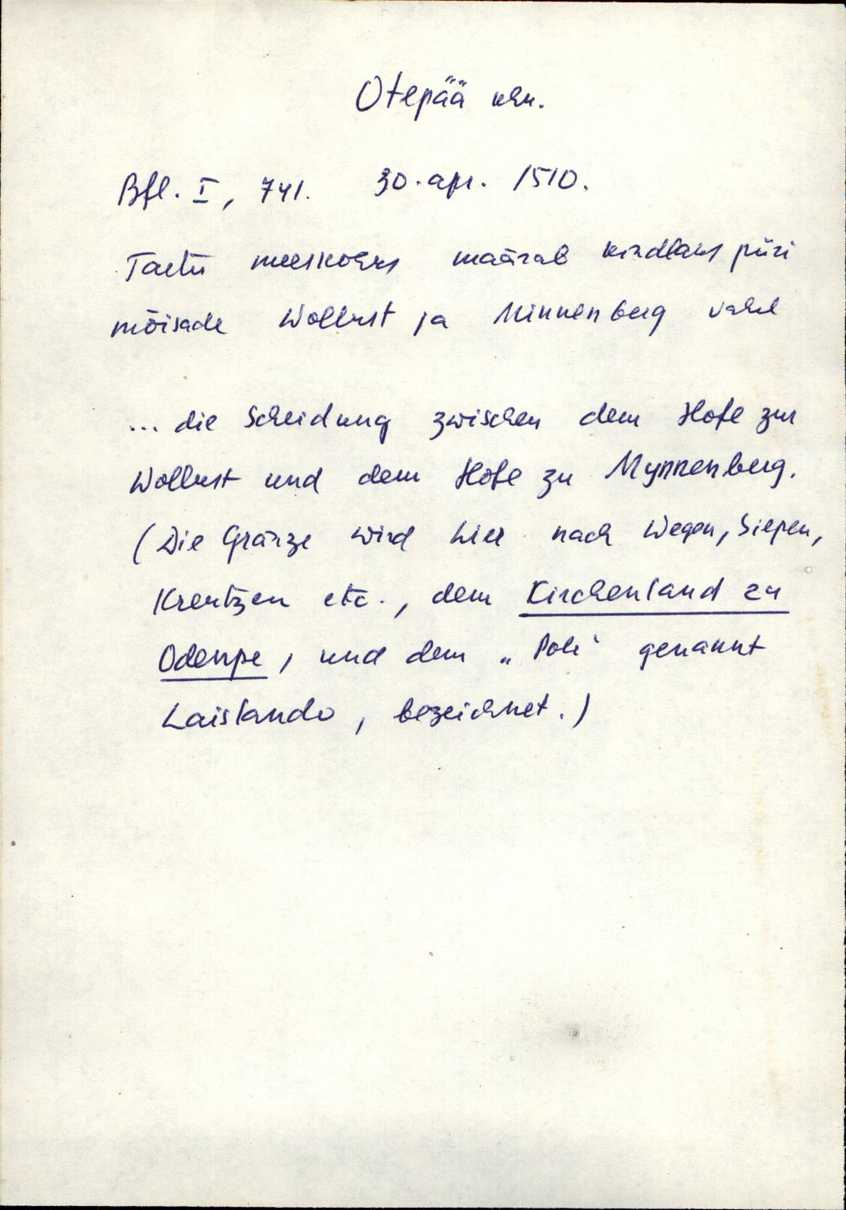 Otepää khn.
Bfl. I, 741. 30. apr. 1510.
Tartu meeskohus määrab kindlaks piiri
mõisade Wollust ja Minnenberg vahel
... die Scheidung zwischen dem Hofe zur
Wollust und dem Hofe zu Mynnenberg.
(Die Gränze wird hier nach Wegen, Siepen,
Kreutzen etc., dem Kirchenland zu
Odenpe, und dem „Pole“ genannt
Laislando, bezeichnet.)